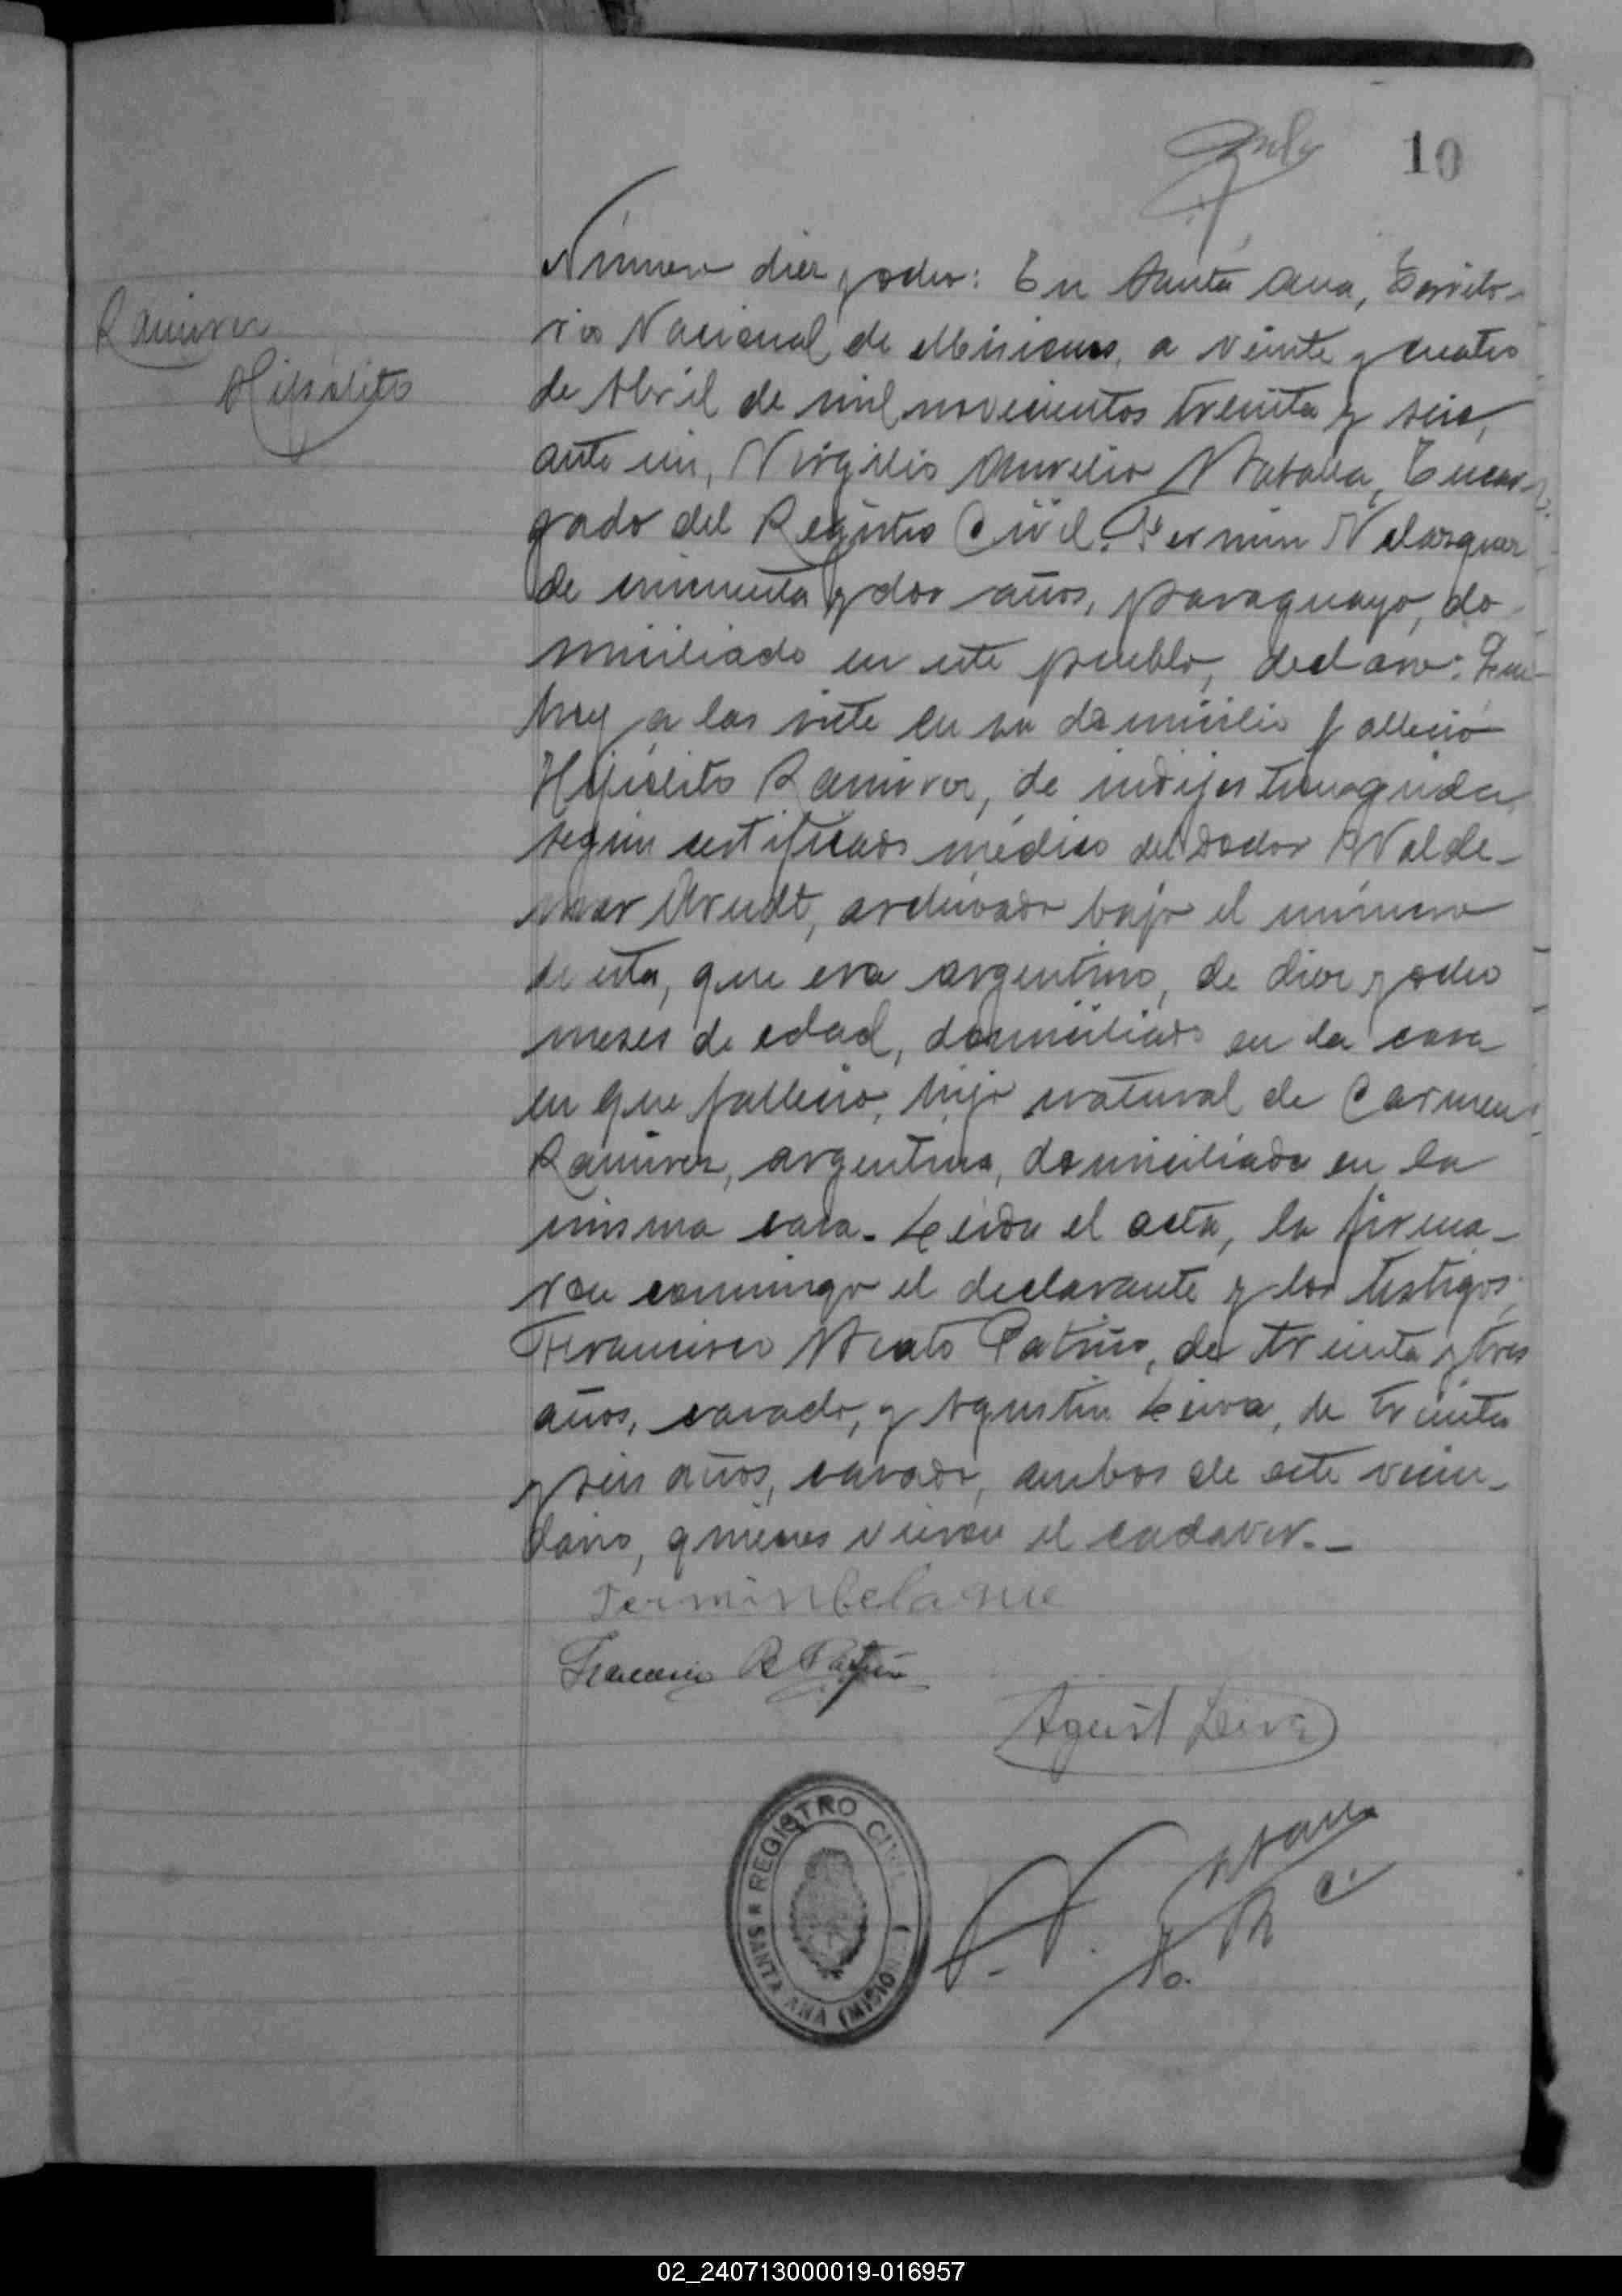 10
Ramirez
Hipólito
Número diez y ocho: En Santa Ana, Territo-
rio Nacional de Misiones, a veinte y cuatro
de Abril de mil novecientos treinta y seis,
ante mi, Virgilio Aurelio Encar-
gado del Registro Civil: Fermin Velazquez
de cincuenta y dos años, paraguayo, do-
miciliado en este pueblo, declaro: Que
hoy a las siete en su domicilio falleció
Hipólito Ramirez, de
según certificado médico del Doctor Walde-
mar Arndt, archivado bajo el número
de esta, que era argentino, de diez y ocho
meses de edad, domiciliado en la casa
en que falleció, hijo natural de Carmen
Ramirez, argentina, domiciliada en la
misma casa. Leida el acta, la firma-
ron conmigo el declarante y los testigos,
Francisco Patiño, de treinta y tres
años, casado, y Agustin Leiva, de treinta
y seis años, casado, ambos de este vecin-
dario, quienes vieron el cadaver.-
Fermin belasque
Francisco R Patiño
Agust Leiva
REGISTRO CIVIL
SANTA ANA (MISIONES)
02_240713000019-016957